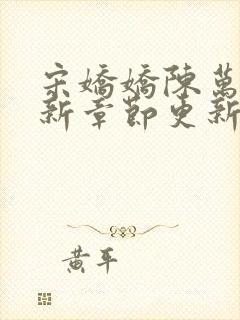 宋嬌嬌陳萬
新章節更新
黃平